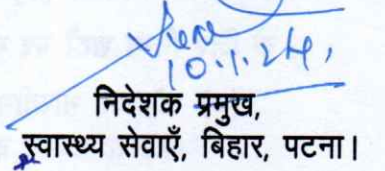 10.1.24,
निदेशक प्रमुख,
स्वास्थ्य सेवाएँ, बिहार, पटना।